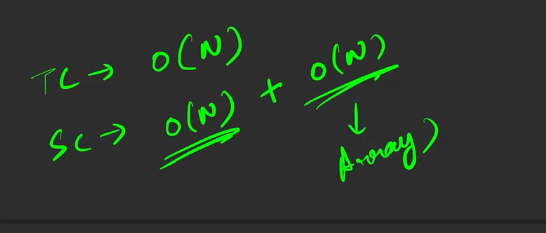 TC → O(N)
SC → O(N) + O(N)
↓
Array)